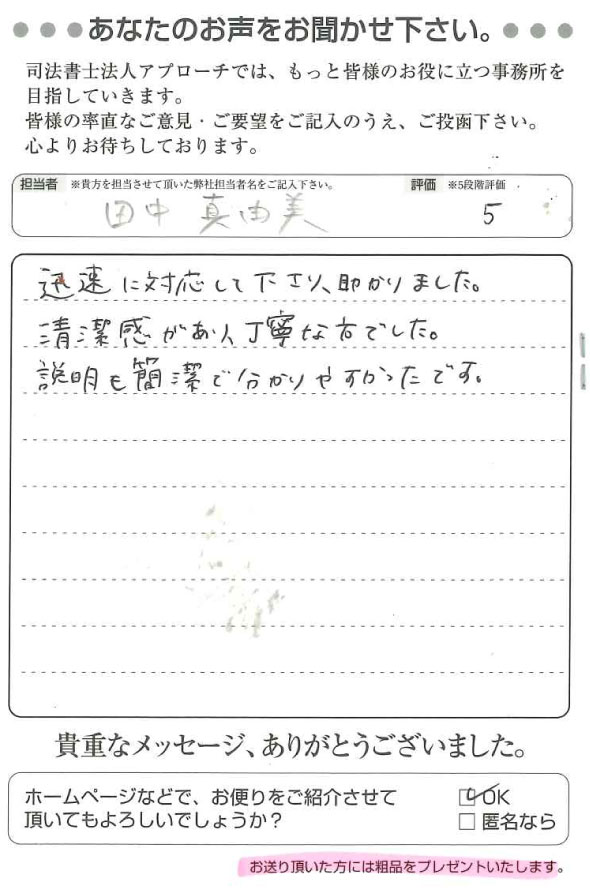 ●●●あなたのお声をお聞かせ下さい。●●●
司法書士法人アプローチでは、もっと皆様のお役に立つ事務所を
目指していきます。
皆様の率直なご意見・ご要望をご記入のうえ、ご投函下さい。
心よりお待ちしております。
担当者 ※貴方を担当させて頂いた弊社担当者名をご記入下さい。 評価 ※5段階評価
田中 真由美 5
迅速に対応して下さり、助かりました。
清潔感があり、丁寧な方でした。
説明も簡潔で分かりやすかったです。
貴重なメッセージ、ありがとうございました。
ホームページなどで、お便りをご紹介させて
頂いてもよろしいでしょうか?
☑ OK
□ 匿名なら
お送り頂いた方には粗品をプレゼントいたします。